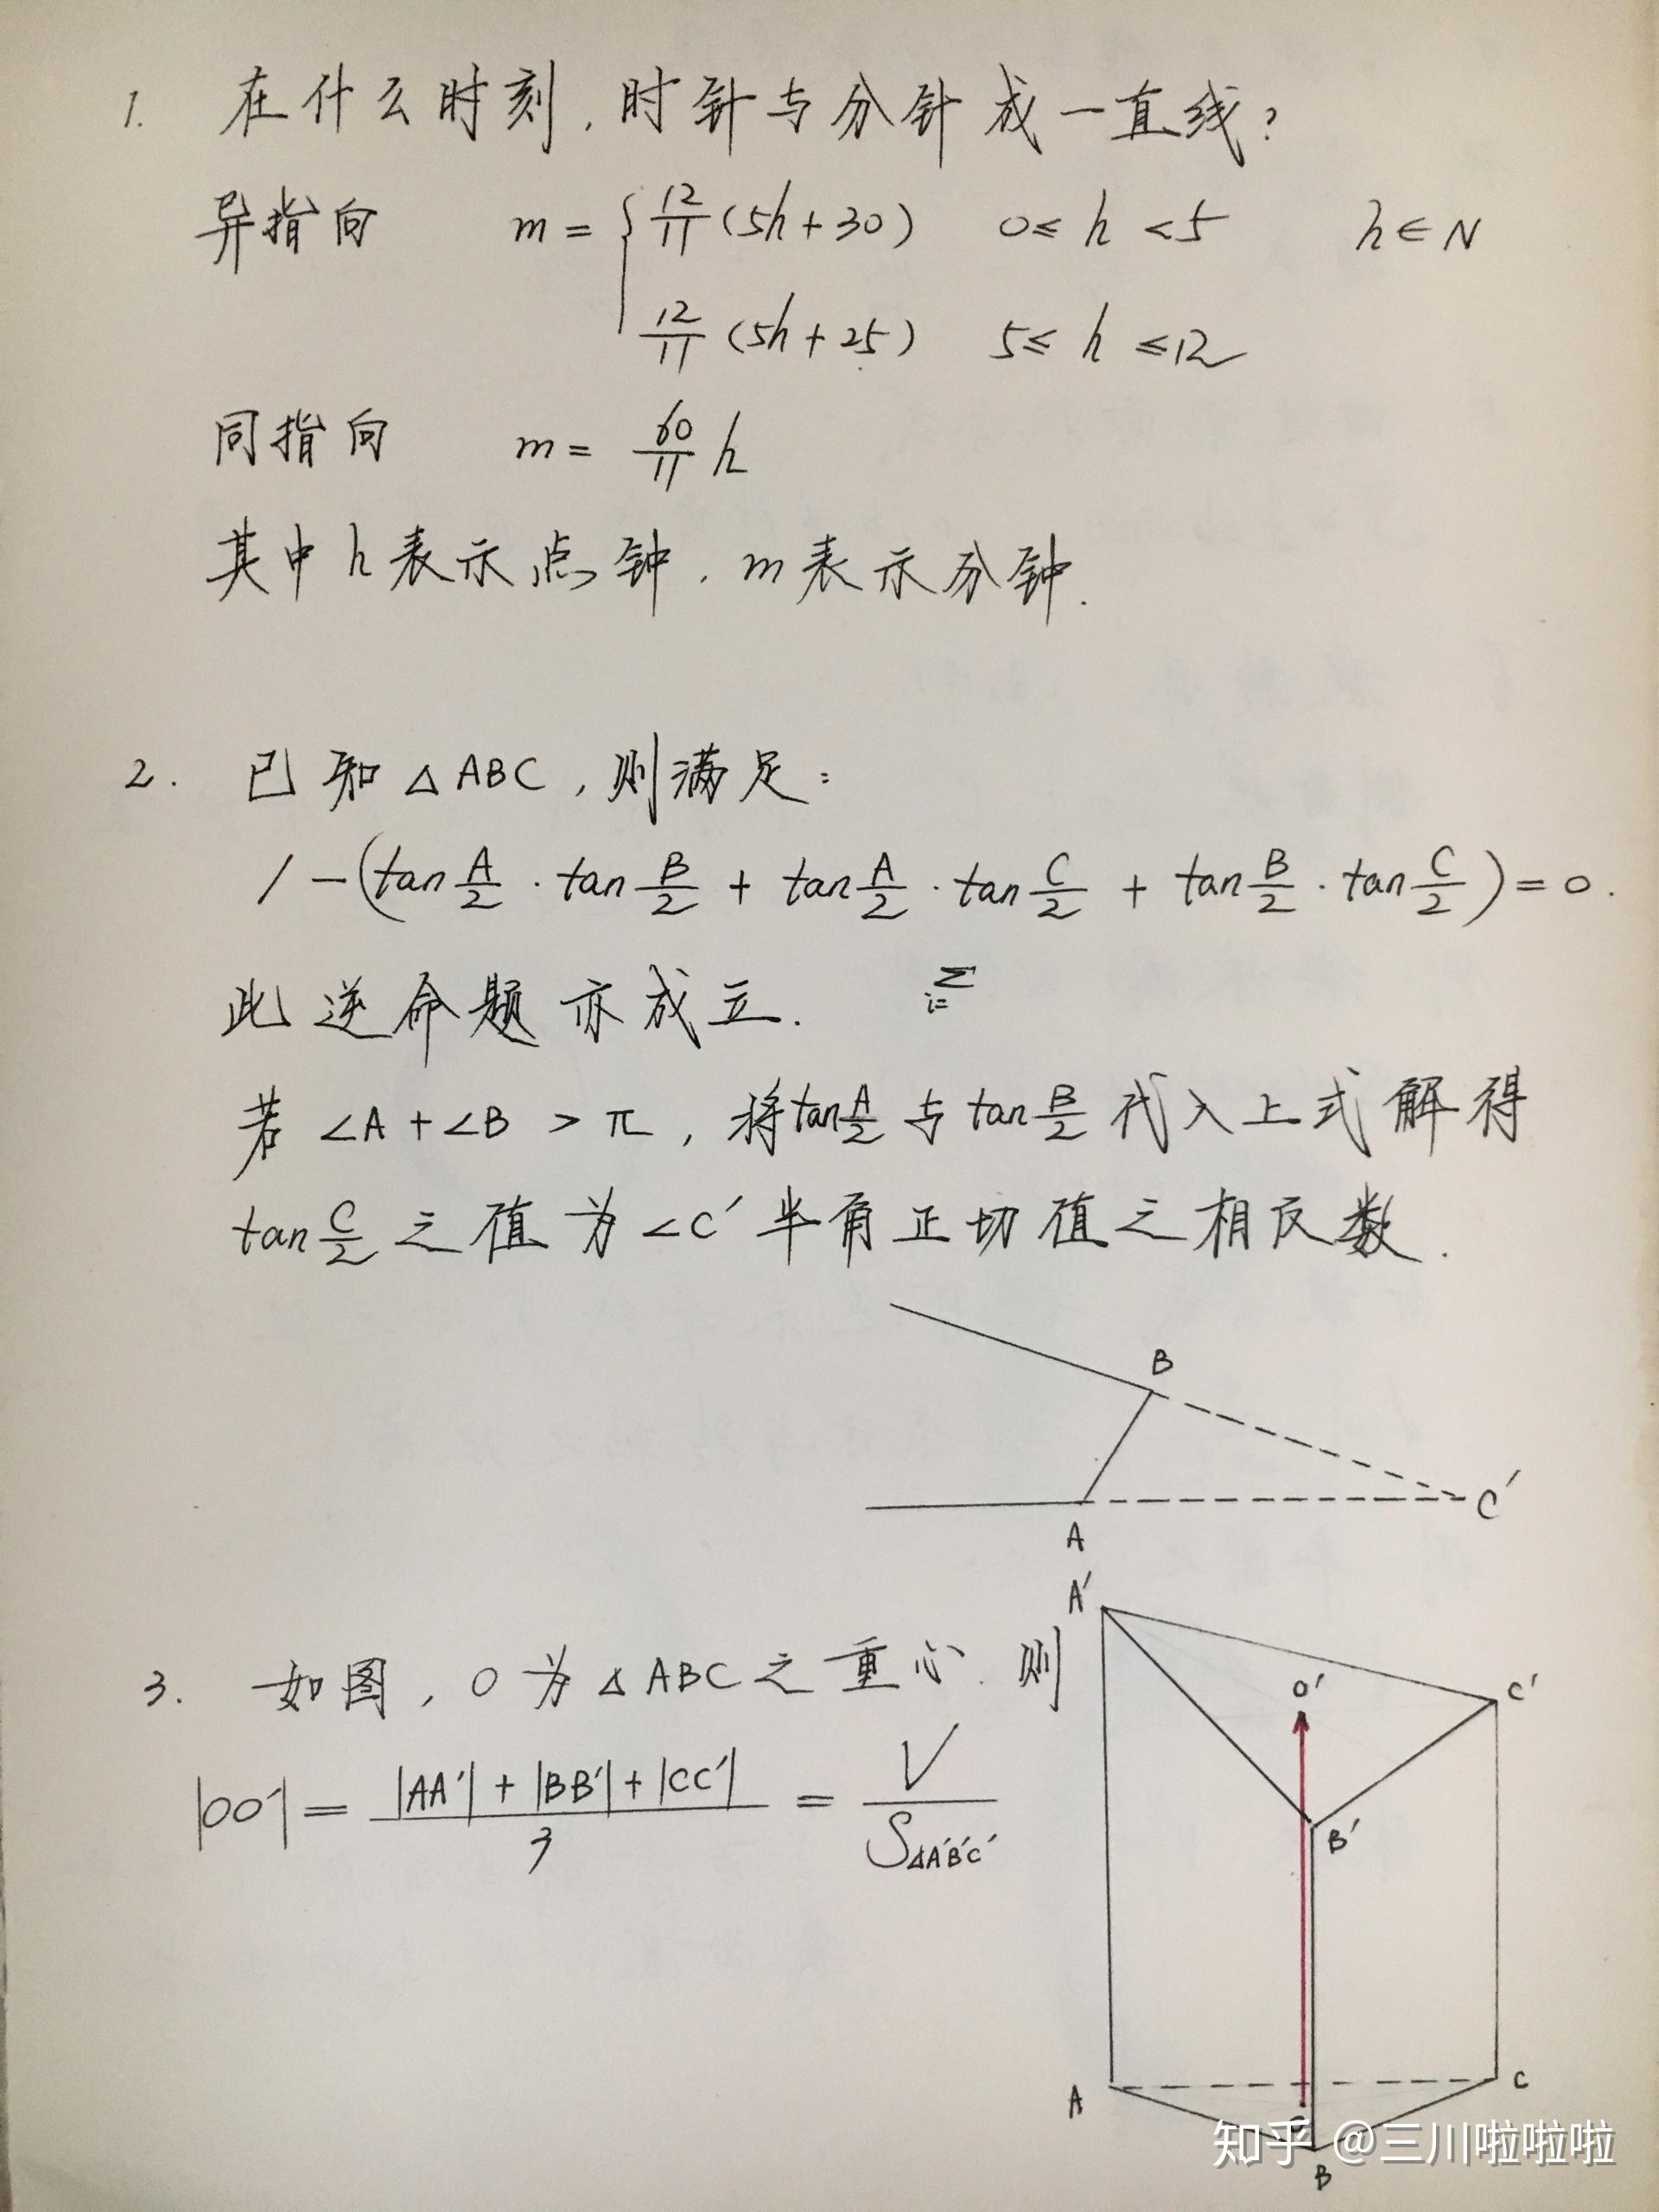 1. 在什么时刻,时针与分针成一直线?
异指向 m = { 12/11 (5h+30) 0≤ h <5 h∈N
12/11 (5h+25) 5≤ h ≤12
同指向 m = 60/11 h
其中h表示点钟,m表示分钟.
2. 已知△ABC,则满足:
1-(tan A/2 · tan B/2 + tan A/2 · tan C/2 + tan B/2 · tan C/2)=0.
此逆命题亦成立. Σ i=
若∠A+∠B > π, 将tan A/2 与 tan B/2 代入上式解得
tan C/2 之值为∠C′半角正切值之相反数.
B
C′
A
A′
3. 如图,O为△ABC之重心.则
O′ C′
|OO′| = (|AA′| + |BB′| + |CC′|)/3 = V/S△A′B′C′
B′
A C
O
B
知乎 @三川啦啦啦